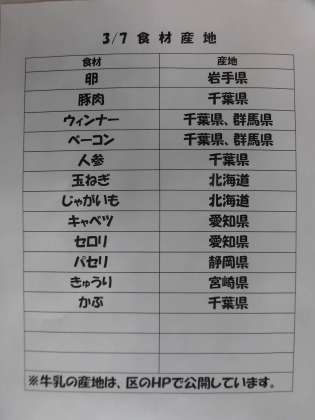 3/7 食材産地
食材 産地
卵 岩手県
豚肉 千葉県
ウィンナー 千葉県、群馬県
ベーコン 千葉県、群馬県
人参 千葉県
玉ねぎ 北海道
じゃがいも 北海道
キャベツ 愛知県
セロリ 愛知県
パセリ 静岡県
きゅうり 宮崎県
かぶ 千葉県
※牛乳の産地は、区のHPで公開しています。